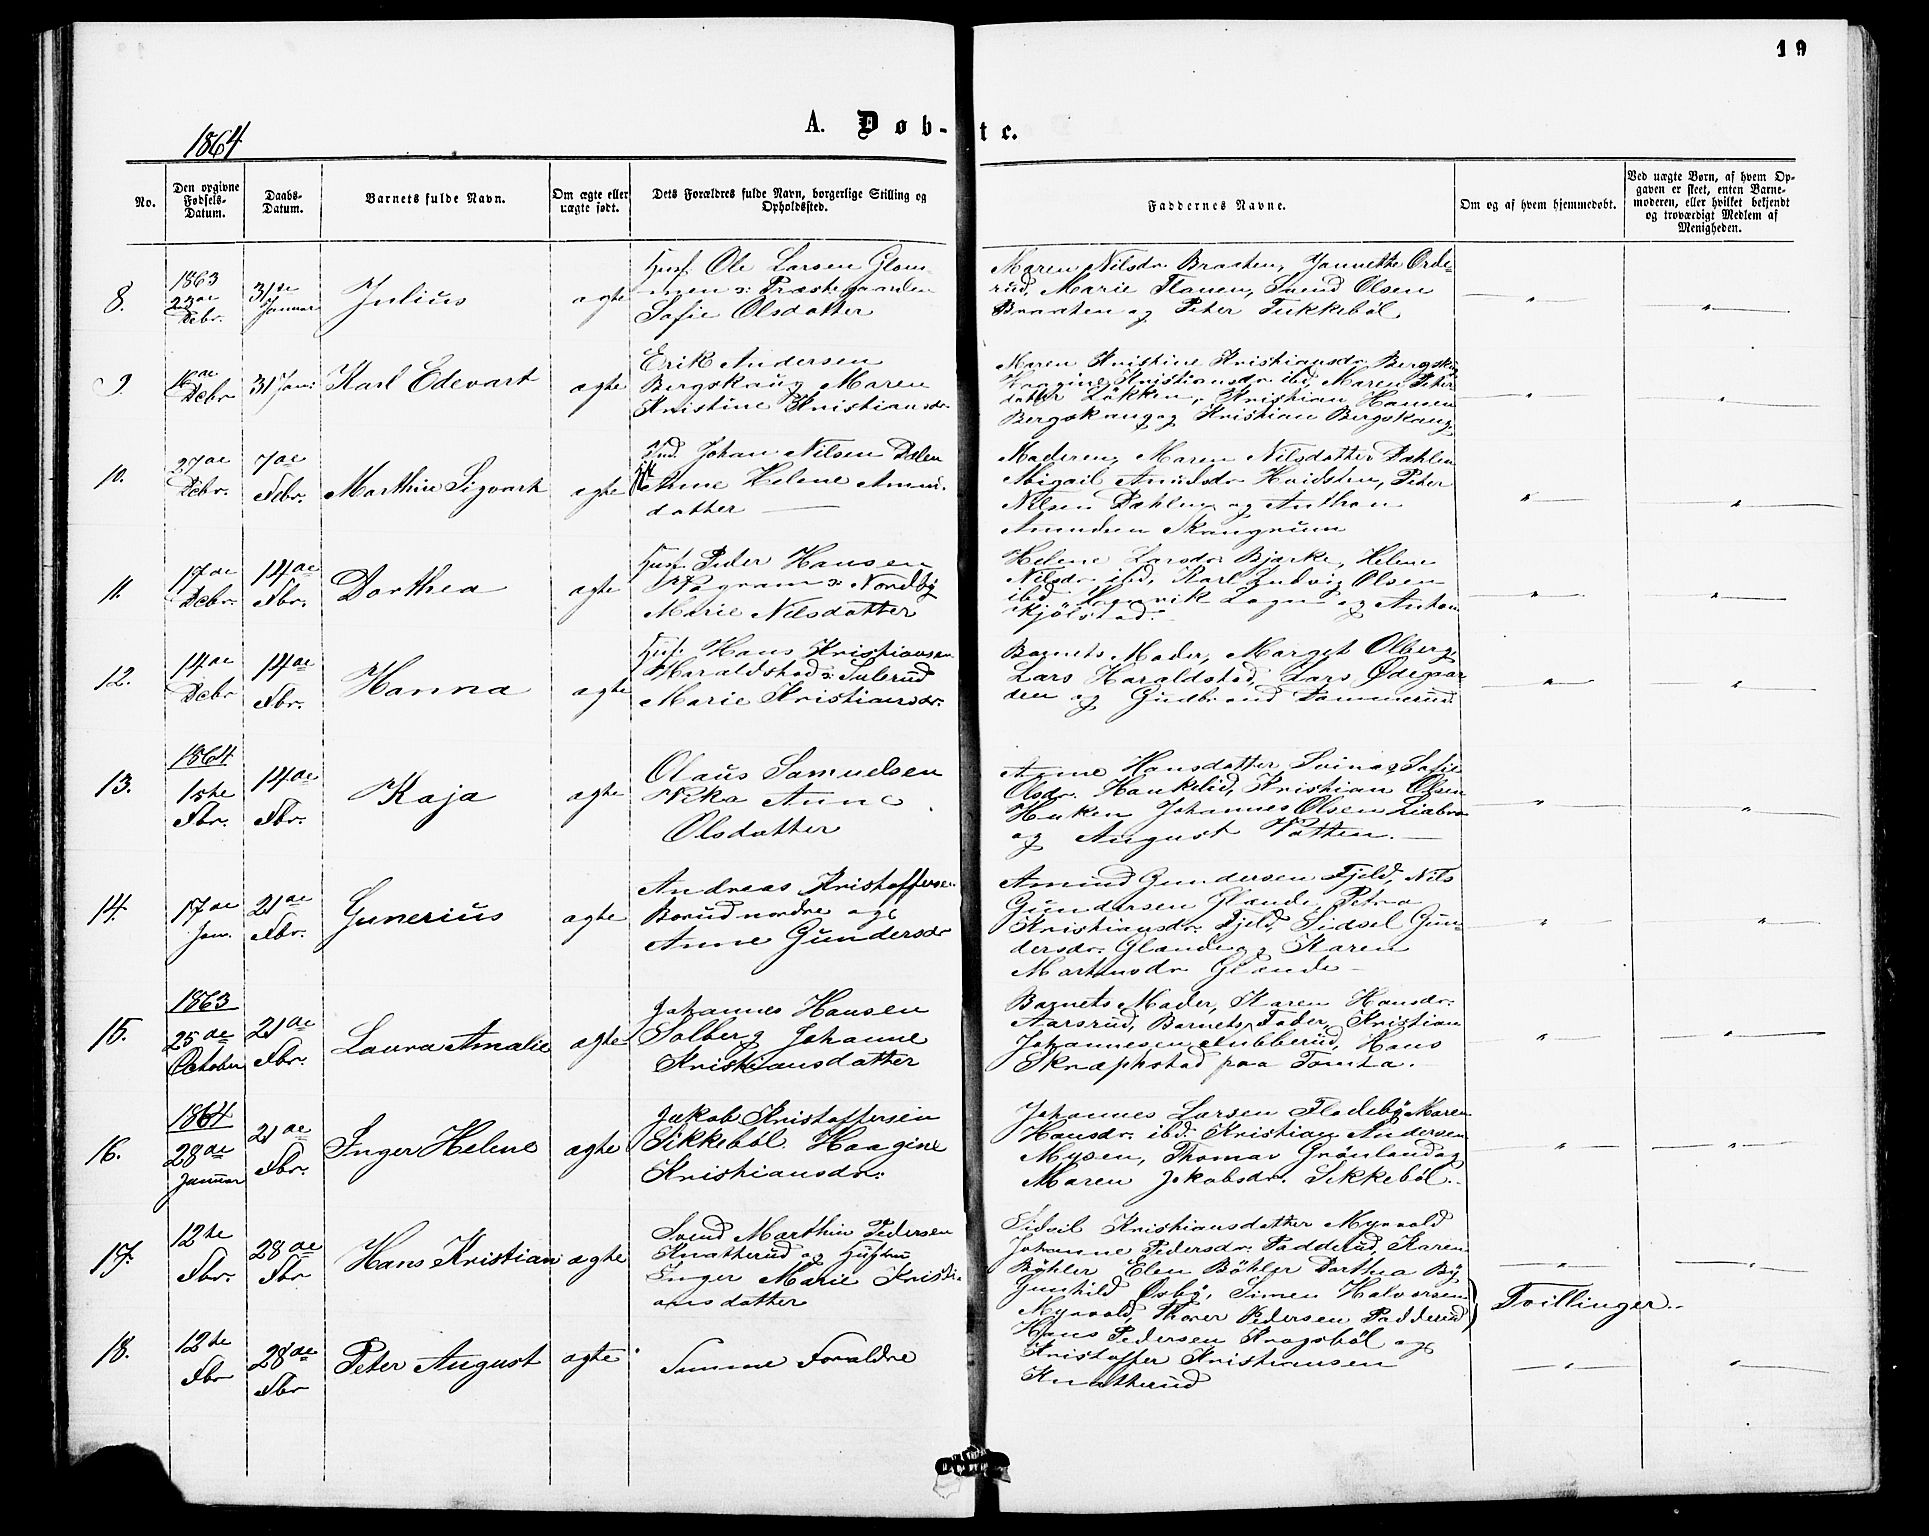 19
A. Døb-te.
1864
No.
Den opgivne Fødsels-Datum.
Daabs-Datum.
Barnets fulde Navn.
Om ægte eller uægte født.
Dets Forældres fulde Navn, borgerlige Stilling og Opholdssted.
Faddernes Navne.
Om og af hvem hjemmedøbt.
Ved uægte Børn, af hvem Opgaven er skeet, enten Barnemoderen, eller hvilket bekjendt og troværdigt Medlem af Menigheden.
8.
1863
23de
Dcbr.
31te
Januar
Julius
ægte
Husf. Ole Larsen Glom-
men s: Præstegaarden
Sofie Olsdatter
Maren Nilsdr. Braaten, Jannette Orde-
rud, Marie Flauen, Svend Olsen
Braaten og Peter Fukkebøl
9.
16de
Dcbr
31 Jan:
Karl Edevart
ægte
Erik Andersen
Bergskaug Maren
Kristine Kristiansdr.
Maren Kristine Kristiansdr. Bergskaug
Kristiansdr. ibd, Maren Peter
datter Løkken, Kristian Hansen
Bergskaug og Kristian Bergskaug
10.
27de
Dcbr.
7de
Febr.
Marthin Sigvart
ægte
Ind. Johan Nilsen Dælen
Anne Helene Amun-
datter
Maderen Maren Nilsdatter Dæhlen
Abigail Amundsdr. Hvidsten, Peter
Nilsen Dæhlen og Anthon
Amundsen Skaugrum
11.
17de
Dcbr.
14de
Fbr.
Dorthea
ægte
Husf. Peder Hansen
Kragram s: Nordby
Marie Nilsdatter
Helene Larsdr. Bjerke, Helene
Nilsdr. ibd, Karl Ludvig Olsen
ibd Henrik Lagu og Anton
Kjølstad.
12.
14de
Dcbr
14de
Fbr.
Hanna
ægte
Husf. Hans Kristiansen
Haraldstad s: Sulerud
Marie Kristiansdr.
Barnets Moder, Margit Olberg,
Lars Haraldstad, Lars Ødegaar
den og Gudbrand Dammerud.
13.
1864
1ste
Fbr.
14de
Fbr.
Kaja
ægte
Olaus Samuelsen
Anne
Olsdatter
Anne Hansdatter Svina, Sofie
Olsdr. Haukelid, Kristian Olsen
Huken Johannes Olsen Liabro
og August Patten.
14.
17de
Jan.
21de
Fbr.
Gunerius
ægte
Andreas Kristoffersen
Borud nordre og
Anne Gundersdr
Amund Gundersen Fjeld, Nils
Gundersen Glende, Petra
Kristiansdr. Fjeld, Sidsel Gun-
dersdr. Glende og Karen
Martinsdr. Glende
15.
1863
25de
October
21de
Fbr.
Laura Amalie
ægte
Johannes Hansen
Solberg Johanne
Kristiansdatter
Barnets Moder, Karen Hansdr.
Aarsrud, Barnets Fader, Kristian
Johannesen Lubberud, Hans
Skræpstad paa Tomta.
16.
1864
28de
Januar
21de
Fbr.
Inger Helene
ægte
Jakob Kristoffersen
Sikkebøl Haagine
Kristiansdr.
Johannes Larsen Fladeby Maren
Hansdr. ibd. Kristian Andersen
Mysen, Thomas Grønland og
Maren Jakobsdr. Sikkebøl.
17.
12te
Fbr.
28de
Fbr
Hans Kristian
ægte
Svend Marthin Pedersen
Knatterud og Hustru
Inger Marie Kristi-
ansdatter
Sidsil Kristiansdatter Myrvold
Johanne Pedersdr. Padderud, Karen
Bøhler Elen Bøhler Dorthea By
Gunhild Østby, Simen Halvorsen
Myrvold, Thorer Pedersen Padderud
Hans Pedersen Kragsbøl og
Kristoffer Kristiansen
Knatterud
Tvillinger.
18.
12te
Fbr
28de
Fbr
Peter August
ægte
Samme Foraldre